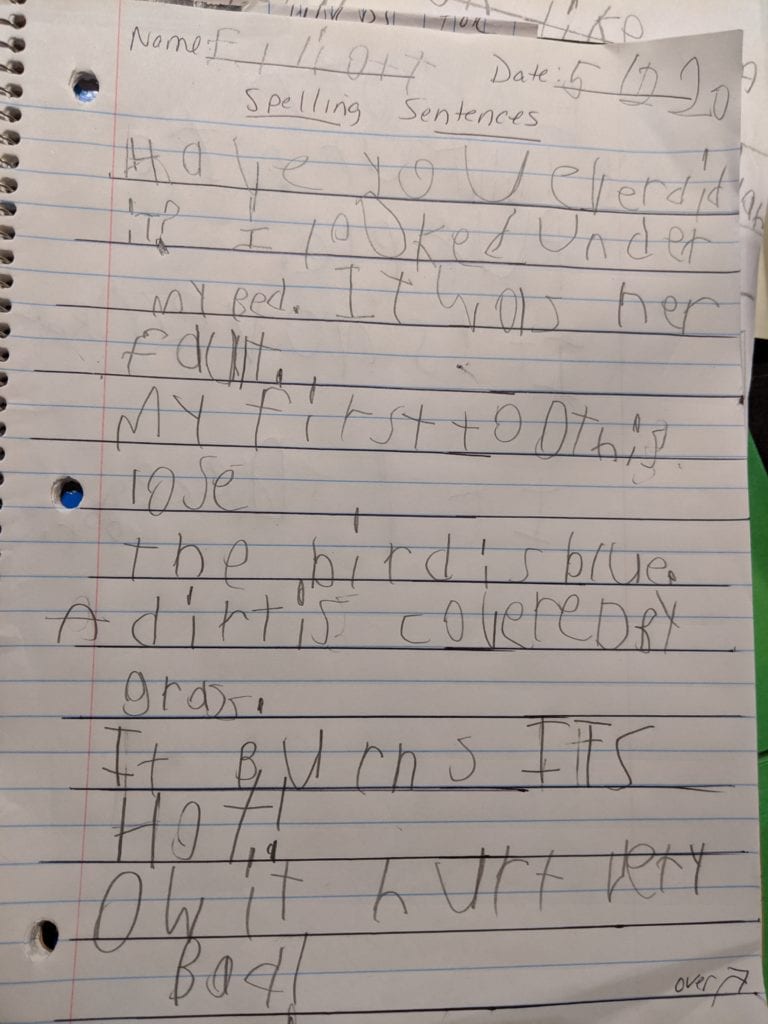 LIKE
Name: Elliott Date: 5 20
Spelling Sentences
Have you ever did
it? I looked under
my Bed. It was her
fault.
My first tooth is
lose
the bird is blue.
A dirt is covereD BY
gras.
It BUrns ITS
HOT!
Ow it hurt very
Bad!
over →